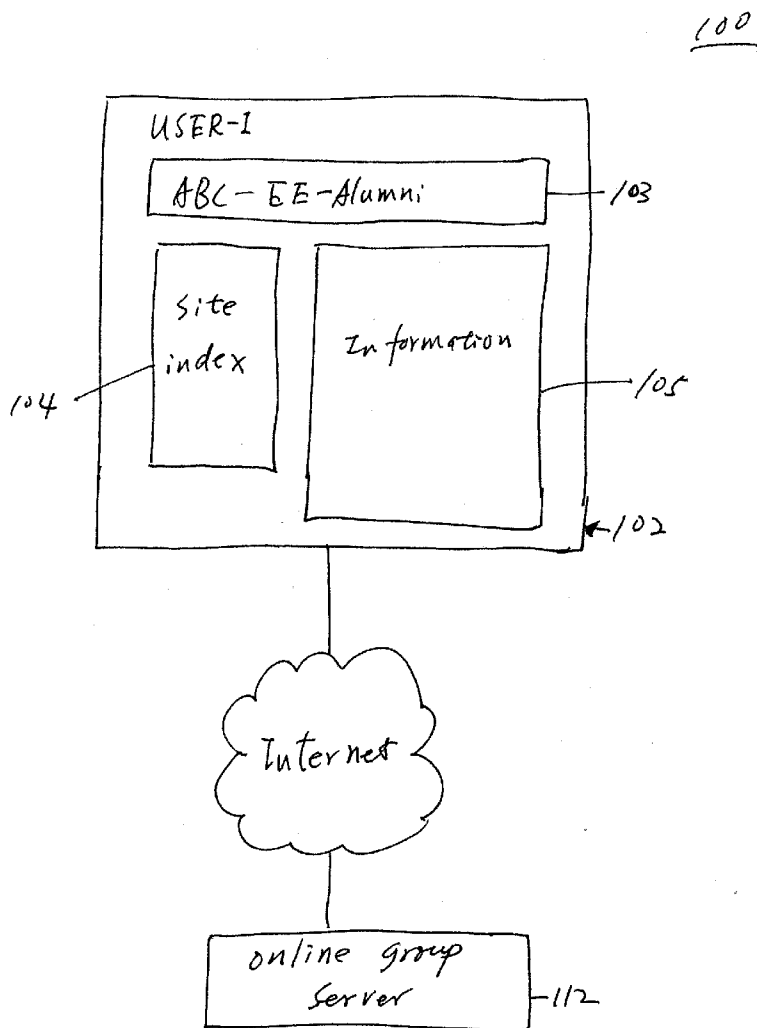 100
USER-I
ABC-EE-Alumni
103
Site
index
Information
104
105
102
Internet
online group
Server
112